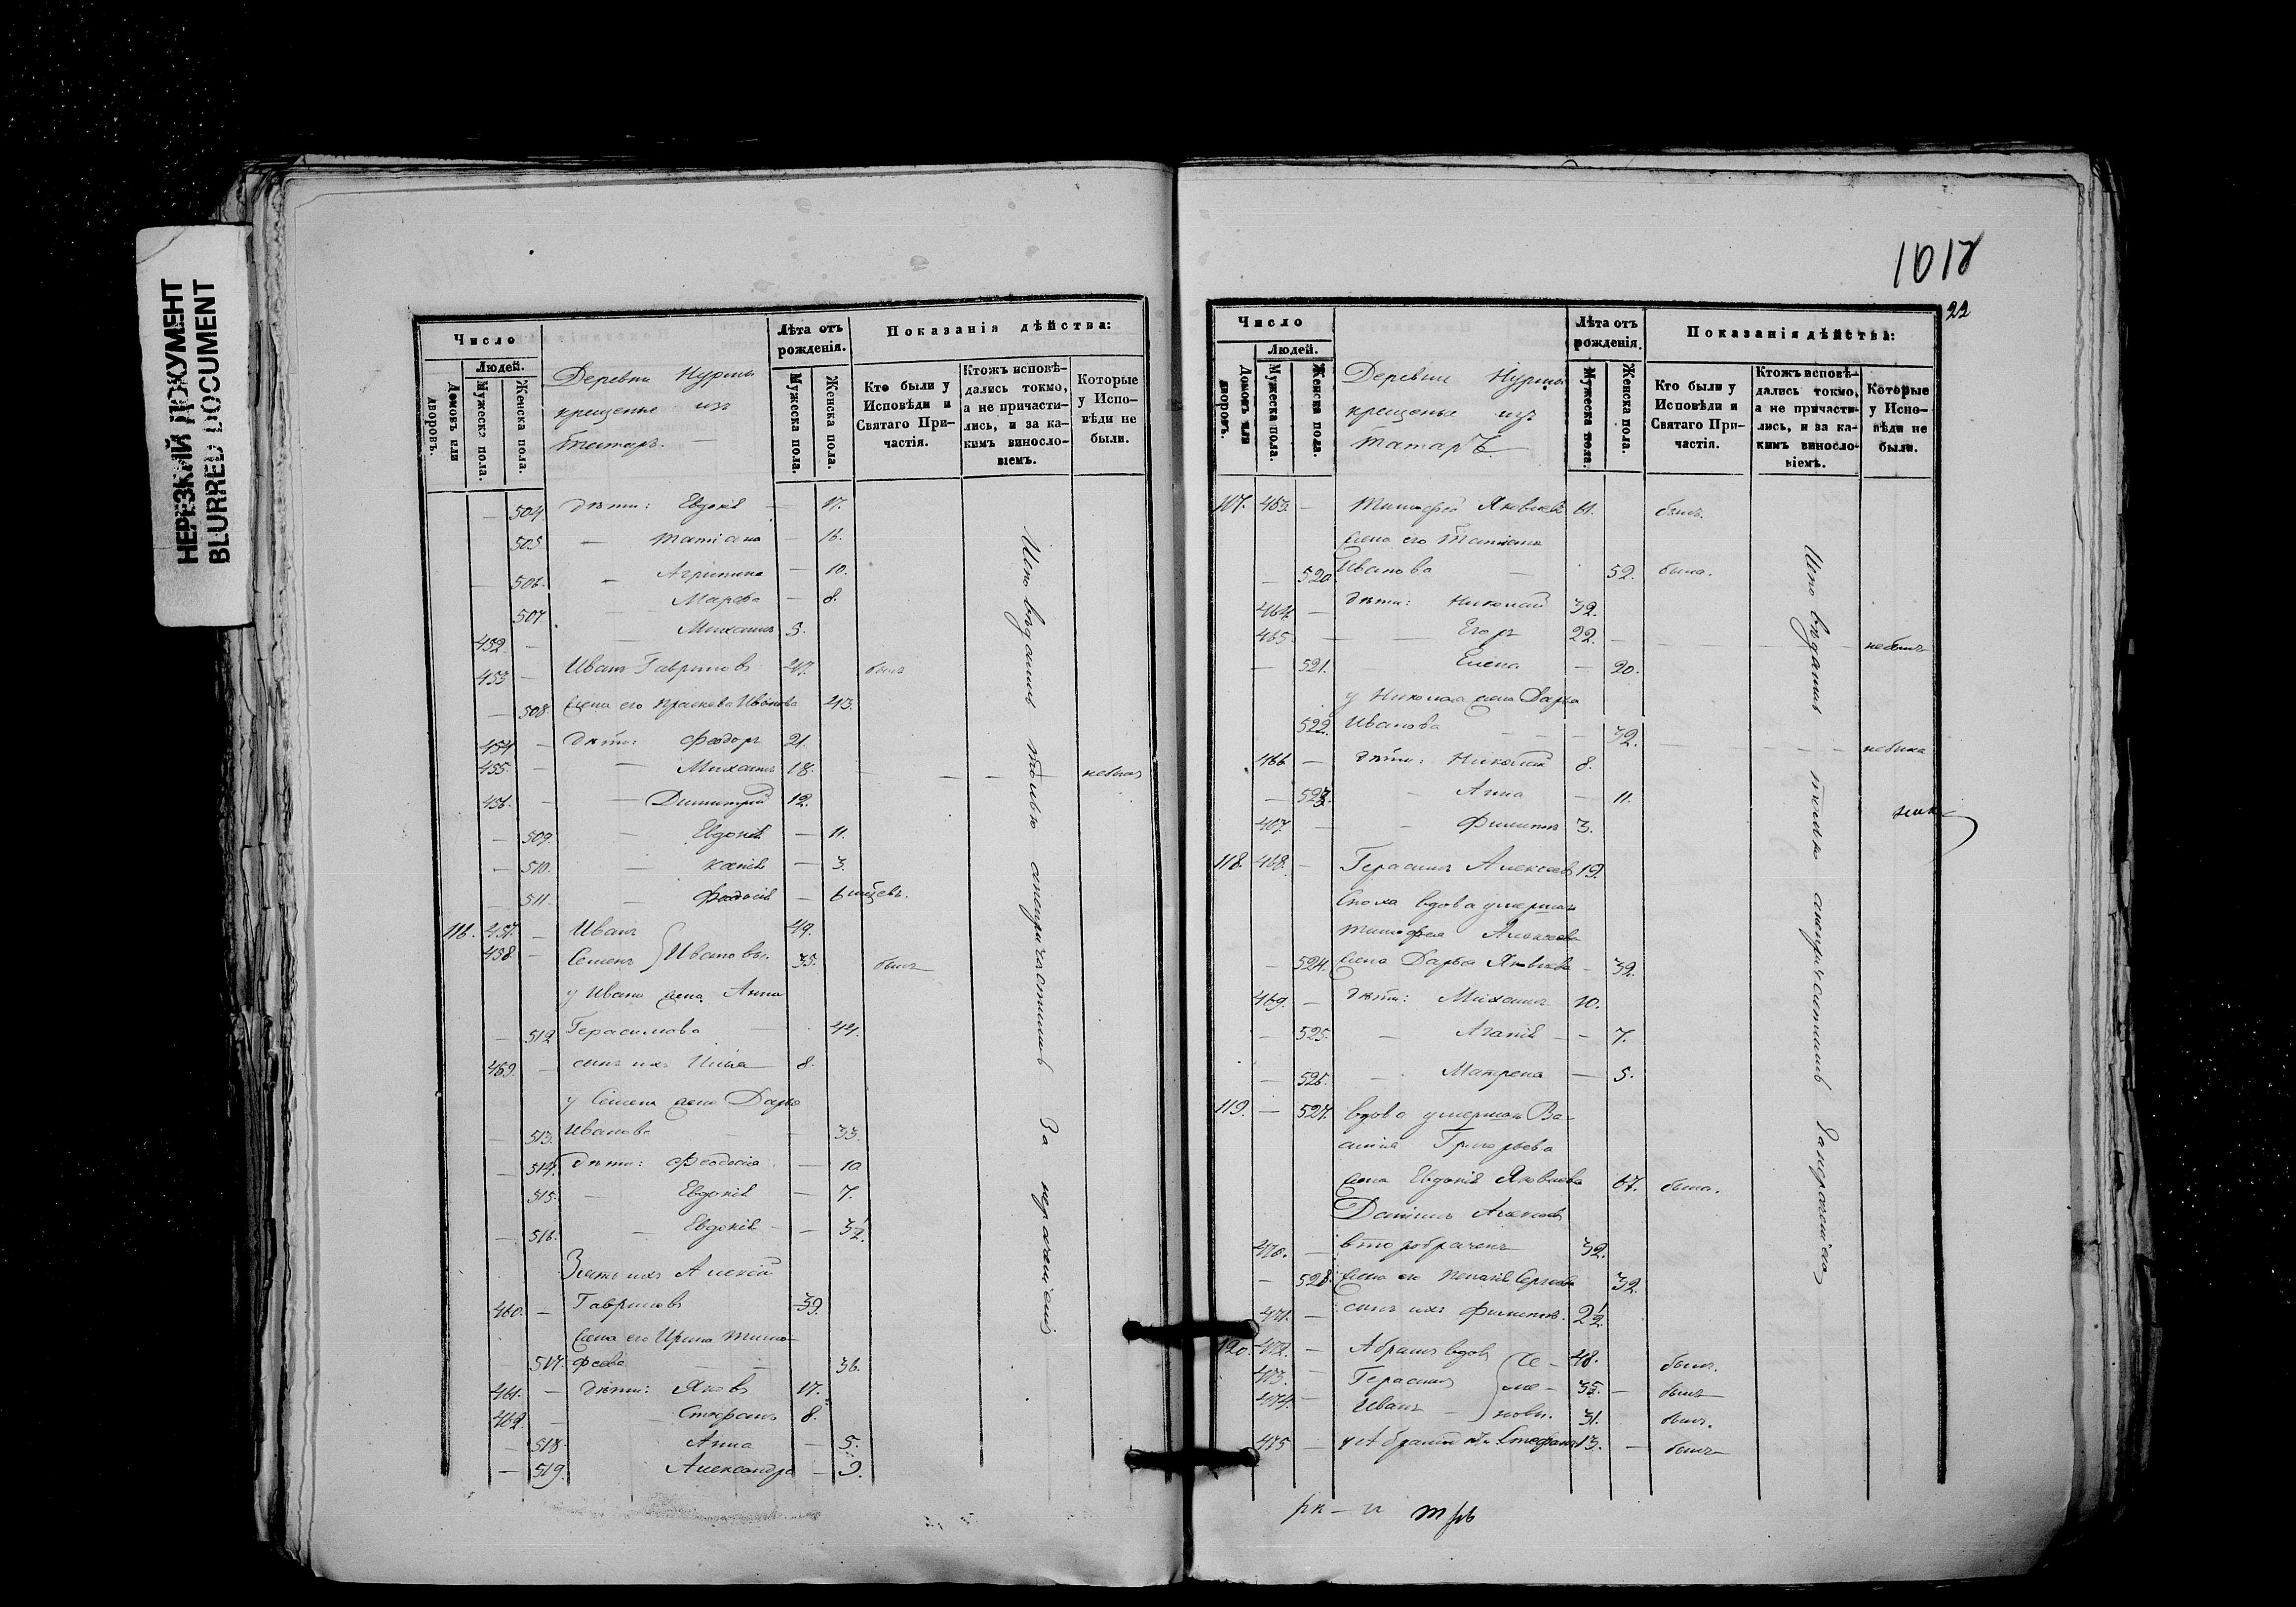 НЕРЕЗКИЙ ДОКУМЕНТ
BLURRED DOCUMENT
Число
Людей.
Домовъ или дворовъ.
Мужеска пола.
Женска пола.
Деревни Нурмы
крещеные изъ
татаръ. —
Лѣта отъ рожденія.
Мужеска пола.
Женска пола.
Показанія дѣйства:
Кто были у Исповѣди и Святаго Причастія.
Ктожъ исповѣдались токмо, а не причастились, и за какимъ винословіемъ.
Которые у Исповѣди не были.
— 504 дѣти: Евдокія — 17.
505 — Татіана — 16.
— 506. — Агрипина — 10.
507 Марѳа — 8.
452 — — Михаилъ 5.
453 — Иванъ Гавриловъ 47. былъ
— 508 Жена его Праскева Иванова 43.
454 — дѣти: Феодоръ 21.
455. — — Михаилъ 18. — — — небылъ
456. — — Димитрій 12.
— 509. — Евдокія — 11.
— 510. — Капія — 3.
— 511. — Феодосія — 6 мѣсяц.
116. 457. — Иванъ 49.
458 — Семенъ } Ивановы. 35. былъ
у Ивана жена Анна
— 512 Герасимова — 44.
469. — сынъ ихъ Илья 8.
у Семена жена Дарья
— 513. Иванова — — 33.
— 514. дѣти: Феодосія — 10
515. — Евдокія — 7.
— 516. — Евдокія — — 3½
Зять ихъ Алексій
460. — Гавриловъ 39.
Жена его Ирина Тимо-
— 517. феева — — 36.
461. — дѣти: Яковъ 17.
462. — — Стефанъ 8.
— 518. Анна — 5.
— 519. Александра — 9.
Исповѣдались только анепричастились За нераченіемъ
1017
22
Число
Людей.
Домовъ или дворовъ.
Мужеска пола.
Женска пола.
Деревни Нурмы
крещеные изъ
татаръ.
Лѣта отъ рожденія.
Мужеска пола.
Женска пола.
Показанія дѣйства:
Кто были у Исповѣди и Святаго Причастія.
Ктожъ исповѣдались токмо, а не причастились, и за какимъ винословіемъ.
Которые у Исповѣди не были.
117. 463. — Тимофей Яковлевъ 61. былъ.
Жена его Татіана
— 520 Иванова — 52. была.
464. — дѣти: Николай 32.
465. — — Егоръ 22. — — — небылъ
— 521. Елена — 20.
у Николая жена Дарья
522. Иванова — — — 32. — — — небыла
466 — дѣти: Николай 8.
— 523. — Анна — 11.
467. — — Филиппъ 3.
118. 468. — Герасимъ Алексеевъ 19.
Сноха вдова умершаго
Тимофея Алексеева
— 524. Жена Дарья Яковлева — 32.
469. — дѣти: Михаилъ 10.
— 525. — Агапія — — 7.
— 526. — Матрена — 5.
119. — 527. вдова умершаго Ва-
силія Григорьева
Жена Евдокія Яковлева 67. была.
Даніилъ Алексеев
470. — второбраченъ 32.
— 528. Жена его Пелагія Сергеева 32.
471. — сынъ ихъ Филиппъ. 2½
120. 472. — Абрамъ вдов } Се- 48. былъ.
473. — Герасимъ ме- 35. — былъ
474. — Иванъ — новы. 31. былъ.
475 — у Абрама Стефанъ 13. — былъ
Исповѣдались только анепричастились Занераченіемъ